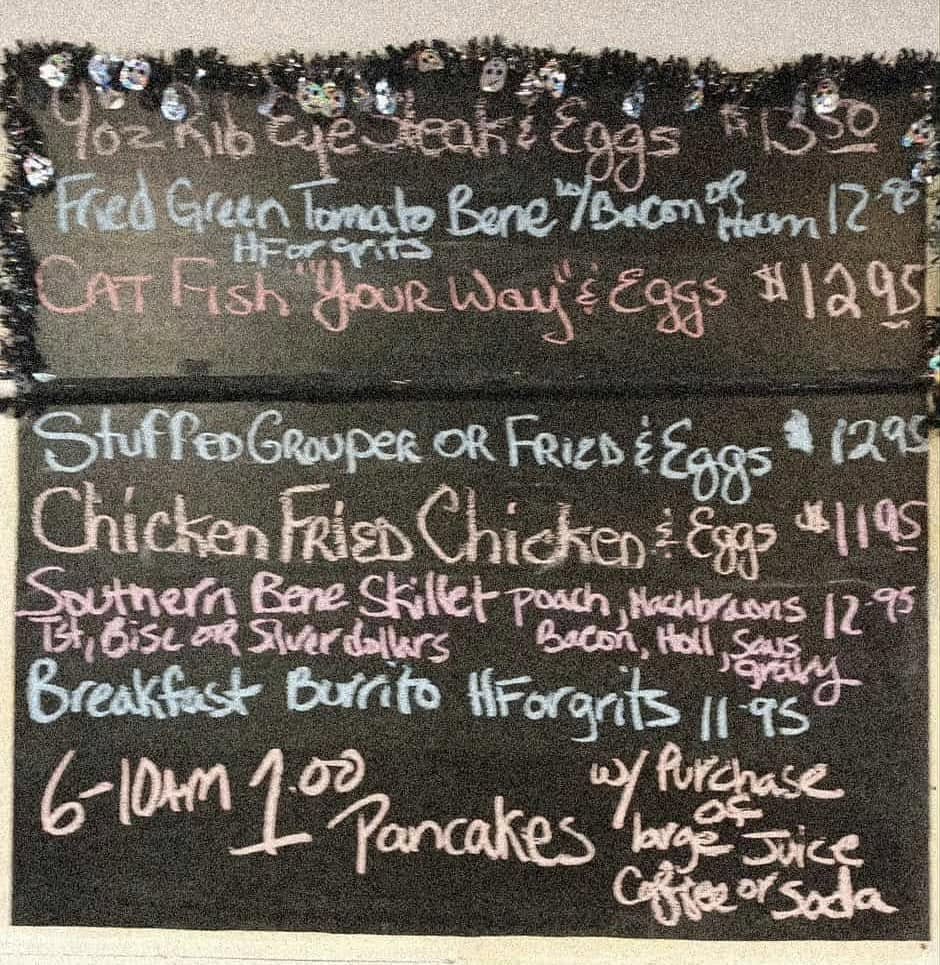 9oz Rib Eye Steak & Eggs $13.50
Fried Green Tomato Bene w/Bacon or Ham 12.95
HF or grits
CAT Fish "Your Way" & Eggs $12.95
Stuffed Grouper or Fried & Eggs $12.95
Chicken Fried Chicken & Eggs $11.95
Southern Bene Skillet poach, Hashbrowns 12-95
Tst, Bisc or Silver dollars Bacon, Holl, Saus, gravy
Breakfast Burrito HF or grits 11-95
6-10AM 1.00 Pancakes
w/ Purchase
of
large Juice
Coffee or Soda